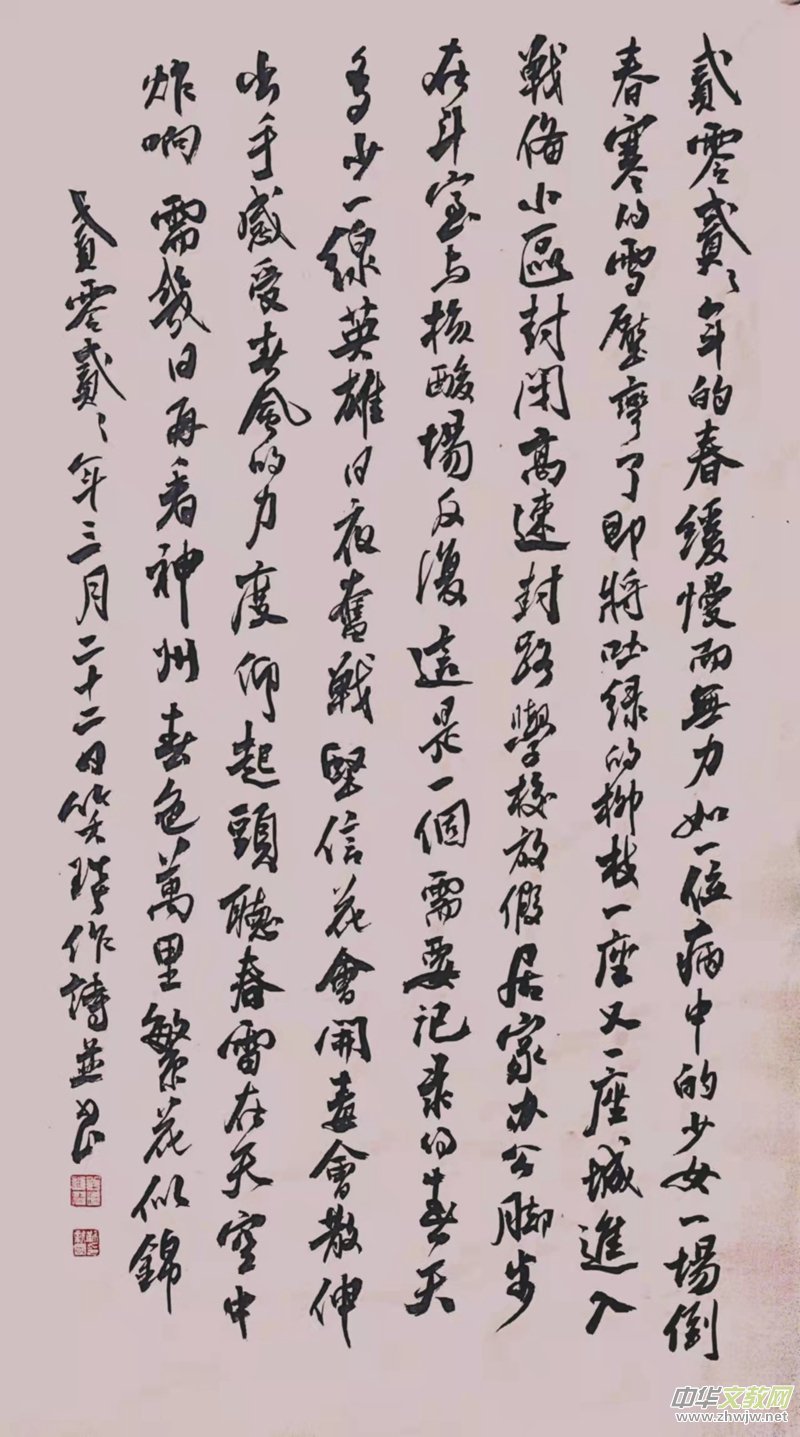 貳零貳々年的春緩慢而無力如一位病中的少女一場倒
春寒的雪壓彎了即將吐绿的柳枝一座又一座城進入
戦俻小區封闭高速封路學校放假居家办公脚步
在斗室与核酸場反復這是一個需要记录的春天
多少一線英雄日夜奮戦堅信花會開毒會散伸
出手感受春風的力度仰起頭聽春雷在天空中
炸响需幾日再看神州春色萬里繁花似錦
貳零貳々年三月二十二日笑 作詩並书
中华文教网
www.zhwjw.net